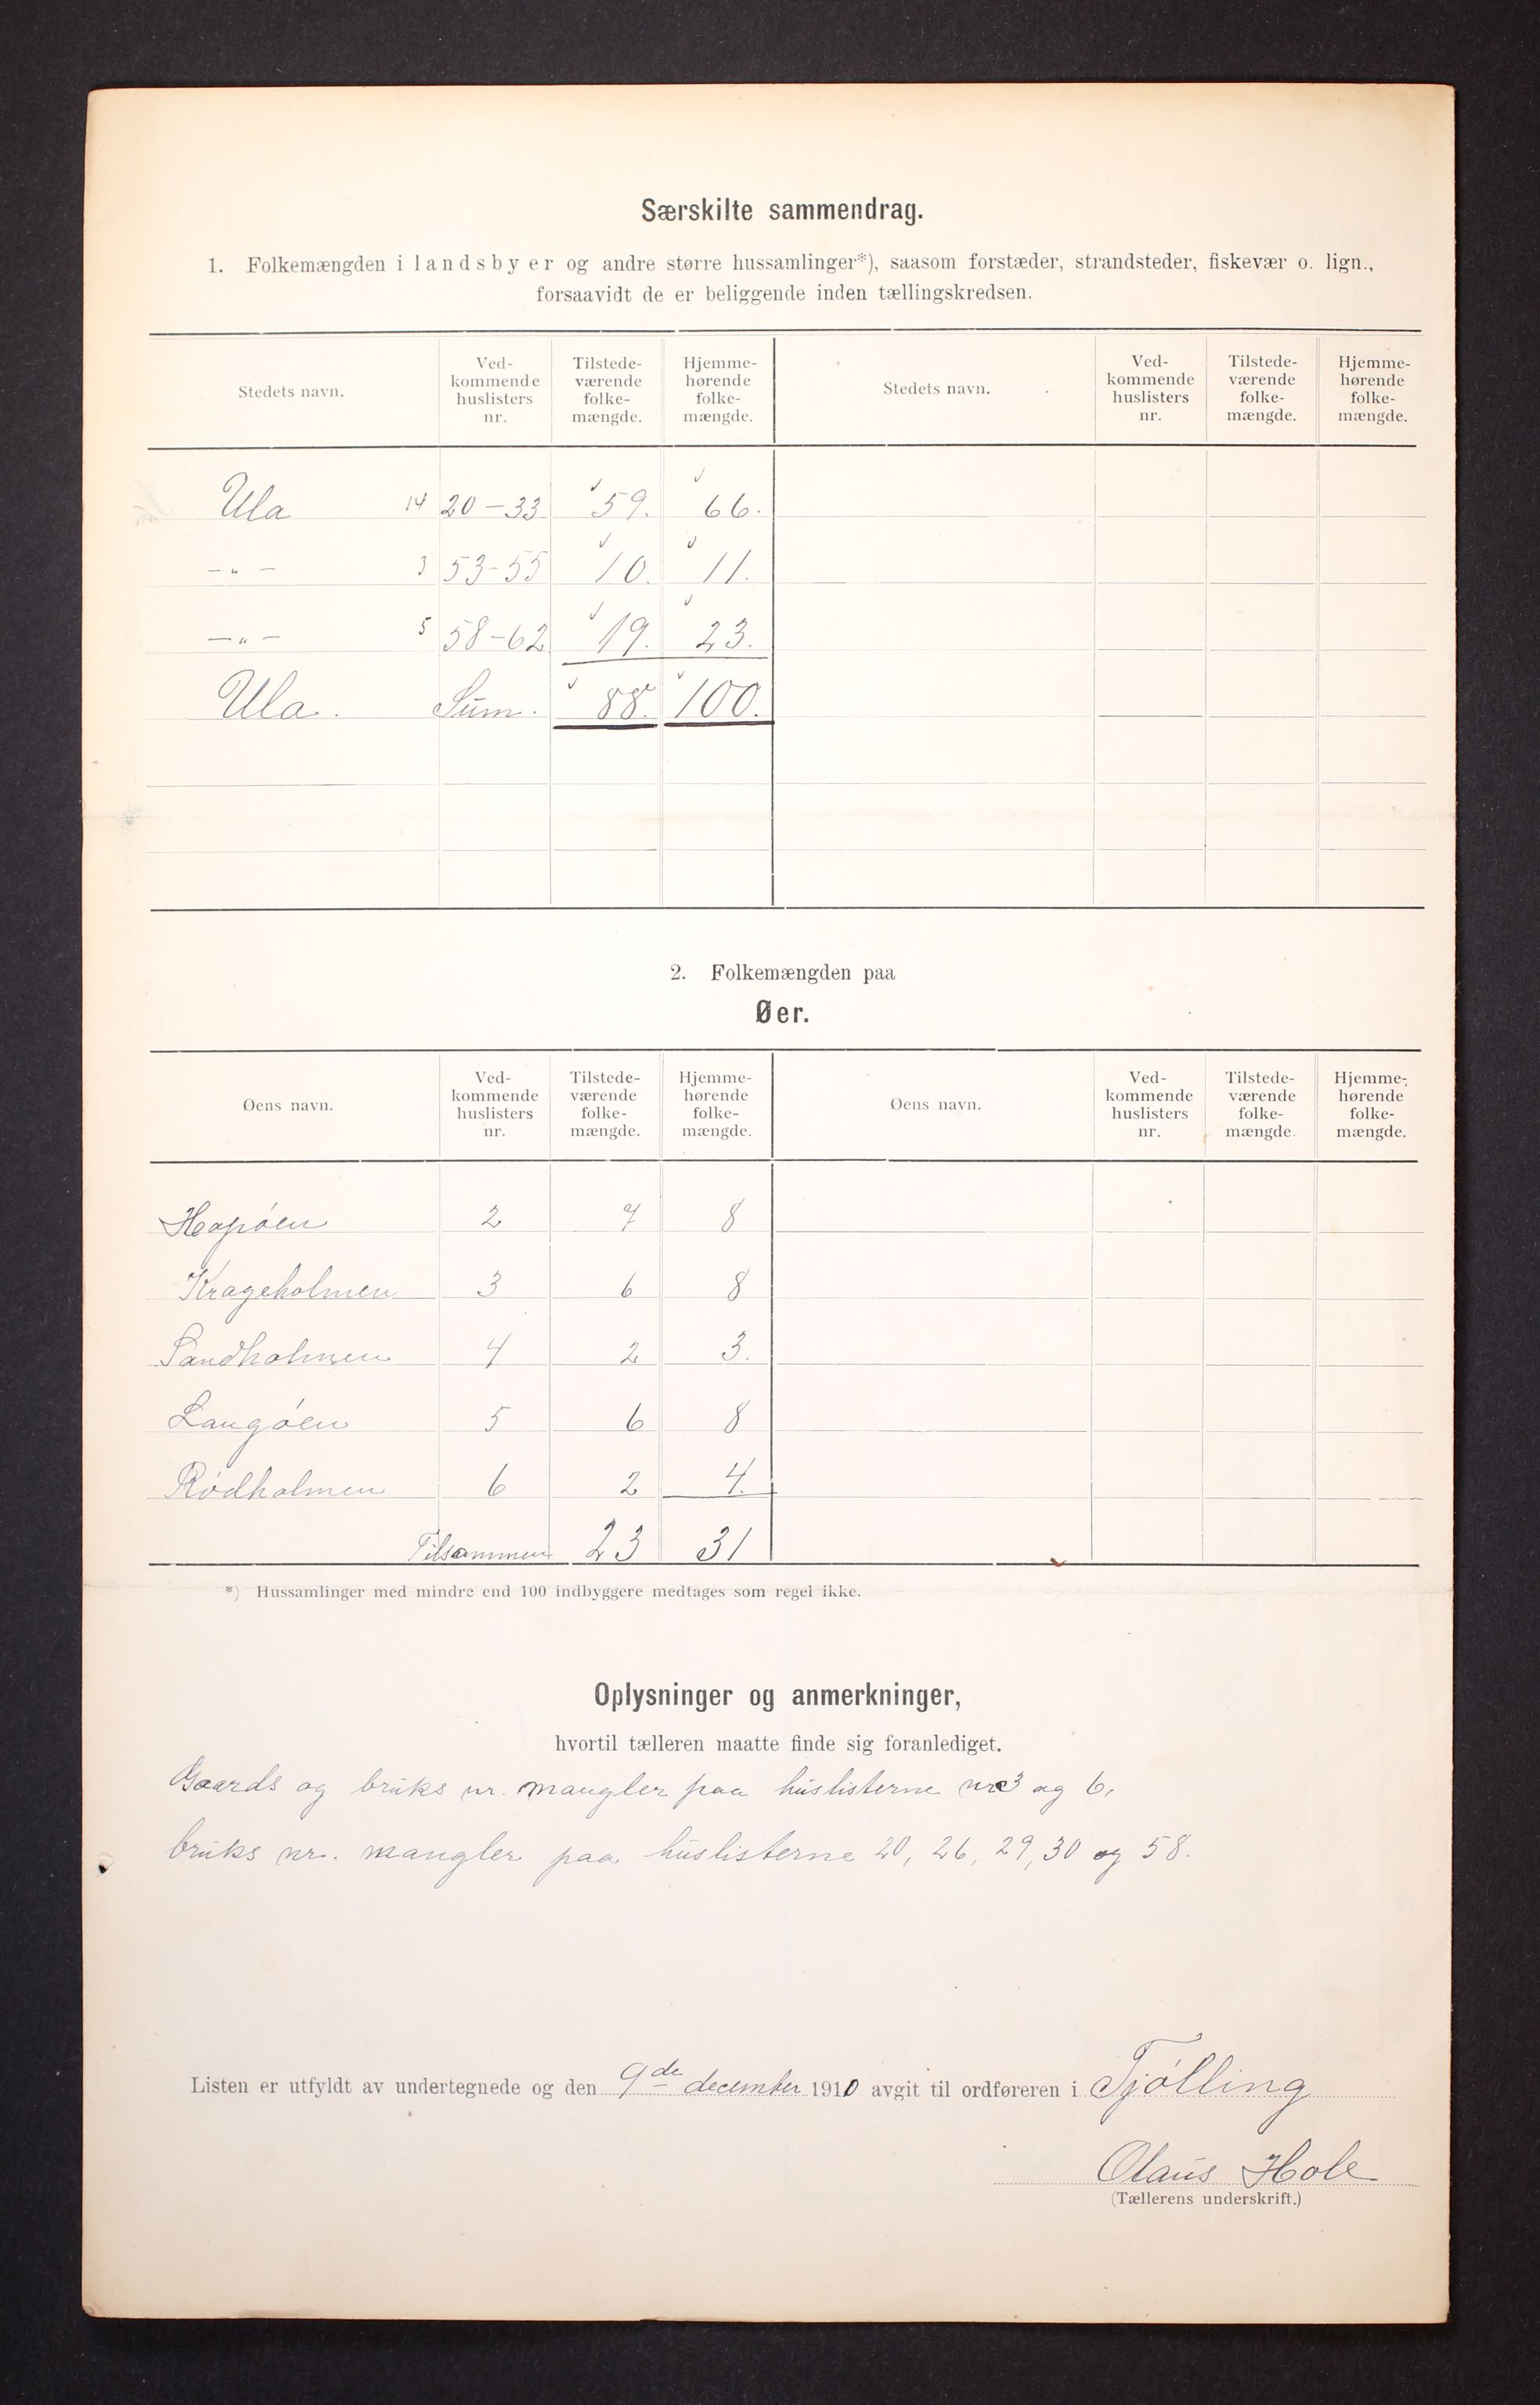 Særskilte sammendrag.
1. Folkemængden i landsbyer og andre større hussamlinger*), saasom forstæder, strandsteder, fiskevær o. lign.,
forsaavidt de er beliggende inden tællingskredsen.
Stedets navn. Ved-kommende huslisters nr. Tilstede-værende folke-mængde. Hjemme-hørende folke-mængde. Stedets navn. Ved-kommende huslisters nr. Tilstede-værende folke-mængde. Hjemme-hørende folke-mængde.
Ula 14 20-33 59. 66.
-"- 3 53-55 10. 11.
-"- 5 58-62 19. 23.
Ula. Sum. 88. 100.
2. Folkemængden paa
Øer.
Øens navn. Ved-kommende huslisters nr. Tilstede-værende folke-mængde. Hjemme-hørende folke-mængde. Øens navn. Ved-kommende huslisters nr. Tilstede-værende folke-mængde. Hjemme-hørende folke-mængde.
2 7 8
Krageholmen 3 6 8
Sandholmen 4 2 3.
Langøen 5 6 8
Rødholmen 6 2 4.
Tilsammen 23 31
*) Hussamlinger med mindre end 100 indbyggere medtages som regel ikke.
Oplysninger og anmerkninger,
hvortil tælleren maatte finde sig foranlediget.
Gaards og bruks nr. mangler paa huslisterne nr 3 og 6,
bruks nr. mangler paa huslisterne 20, 26, 29, 30 og 58.
Listen er utfyldt av undertegnede og den 9de december 1910 avgit til ordføreren i Tjølling
Olaus Hole
(Tællerens underskrift.)